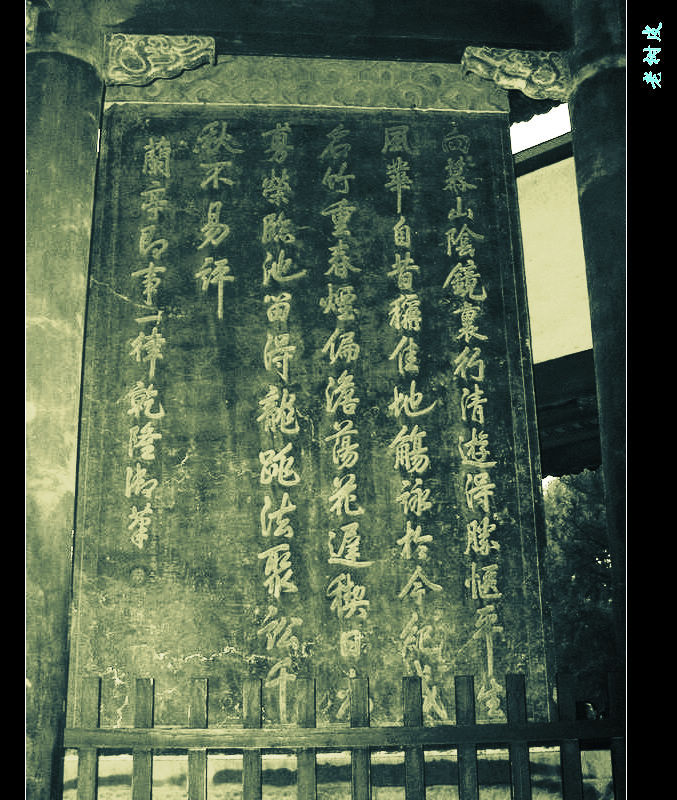 向慕山陰鏡裏行清遊得勝愜平生
風華自昔稱佳地觴詠於今紀盛
名竹重春煙偏澹蕩花遲禊日
敷榮臨池留得龍跳法聚訟千
秋不易評
蘭亭即事一律乾隆御筆
老树皮